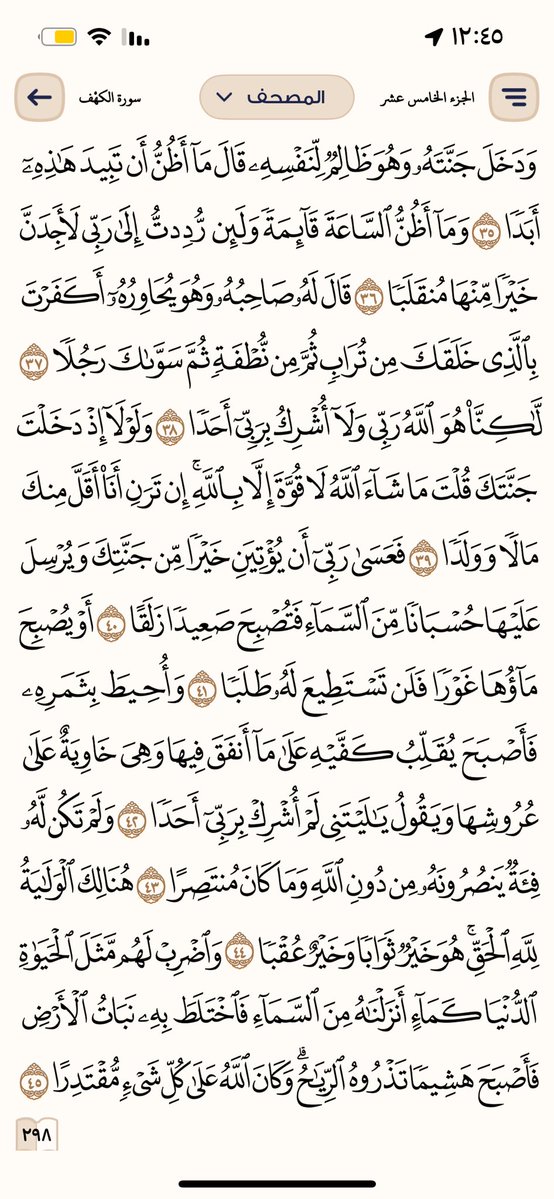 ١٢:٤٥
الجزء الخامس عشر المصحف سورة الكهف
وَدَخَلَ جَنَّتَهُۥ وَهُوَ ظَالِمٌ لِّنَفۡسِهِۦ قَالَ مَآ أَظُنُّ أَن تَبِيدَ هَٰذِهِۦٓ
أَبَدٗا ٣٥ وَمَآ أَظُنُّ ٱلسَّاعَةَ قَآئِمَةٗ وَلَئِن رُّدِدتُّ إِلَىٰ رَبِّي لَأَجِدَنَّ
خَيۡرٗا مِّنۡهَا مُنقَلَبٗا ٣٦ قَالَ لَهُۥ صَاحِبُهُۥ وَهُوَ يُحَاوِرُهُۥٓ أَكَفَرۡتَ
بِٱلَّذِي خَلَقَكَ مِن تُرَابٖ ثُمَّ مِن نُّطۡفَةٖ ثُمَّ سَوَّىٰكَ رَجُلٗا ٣٧
لَّٰكِنَّا۠ هُوَ ٱللَّهُ رَبِّي وَلَآ أُشۡرِكُ بِرَبِّيٓ أَحَدٗا ٣٨ وَلَوۡلَآ إِذۡ دَخَلۡتَ
جَنَّتَكَ قُلۡتَ مَا شَآءَ ٱللَّهُ لَا قُوَّةَ إِلَّا بِٱللَّهِۚ إِن تَرَنِ أَنَا۠ أَقَلَّ مِنكَ
مَالٗا وَوَلَدٗا ٣٩ فَعَسَىٰ رَبِّيٓ أَن يُؤۡتِيَنِ خَيۡرٗا مِّن جَنَّتِكَ وَيُرۡسِلَ
عَلَيۡهَا حُسۡبَانٗا مِّنَ ٱلسَّمَآءِ فَتُصۡبِحَ صَعِيدٗا زَلَقًا ٤٠ أَوۡ يُصۡبِحَ
مَآؤُهَا غَوۡرٗا فَلَن تَسۡتَطِيعَ لَهُۥ طَلَبٗا ٤١ وَأُحِيطَ بِثَمَرِهِۦ
فَأَصۡبَحَ يُقَلِّبُ كَفَّيۡهِ عَلَىٰ مَآ أَنفَقَ فِيهَا وَهِيَ خَاوِيَةٌ عَلَىٰ
عُرُوشِهَا وَيَقُولُ يَٰلَيۡتَنِي لَمۡ أُشۡرِكۡ بِرَبِّيٓ أَحَدٗا ٤٢ وَلَمۡ تَكُن لَّهُۥ
فِئَةٞ يَنصُرُونَهُۥ مِن دُونِ ٱللَّهِ وَمَا كَانَ مُنتَصِرًا ٤٣ هُنَالِكَ ٱلۡوَلَٰيَةُ
لِلَّهِ ٱلۡحَقِّۚ هُوَ خَيۡرٞ ثَوَابٗا وَخَيۡرٌ عُقۡبٗا ٤٤ وَٱضۡرِبۡ لَهُم مَّثَلَ ٱلۡحَيَوٰةِ
ٱلدُّنۡيَا كَمَآءٍ أَنزَلۡنَٰهُ مِنَ ٱلسَّمَآءِ فَٱخۡتَلَطَ بِهِۦ نَبَاتُ ٱلۡأَرۡضِ
فَأَصۡبَحَ هَشِيمٗا تَذۡرُوهُ ٱلرِّيَٰحُۗ وَكَانَ ٱللَّهُ عَلَىٰ كُلِّ شَيۡءٖ مُّقۡتَدِرًا ٤٥
٢٩٨